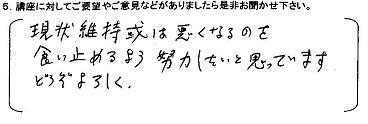 5. 講座に対してご要望やご意見などがありましたら是非お聞かせ下さい。
現状維持或は悪くなるのを
食い止めるよう努力したいと思っています
どうぞよろしく.